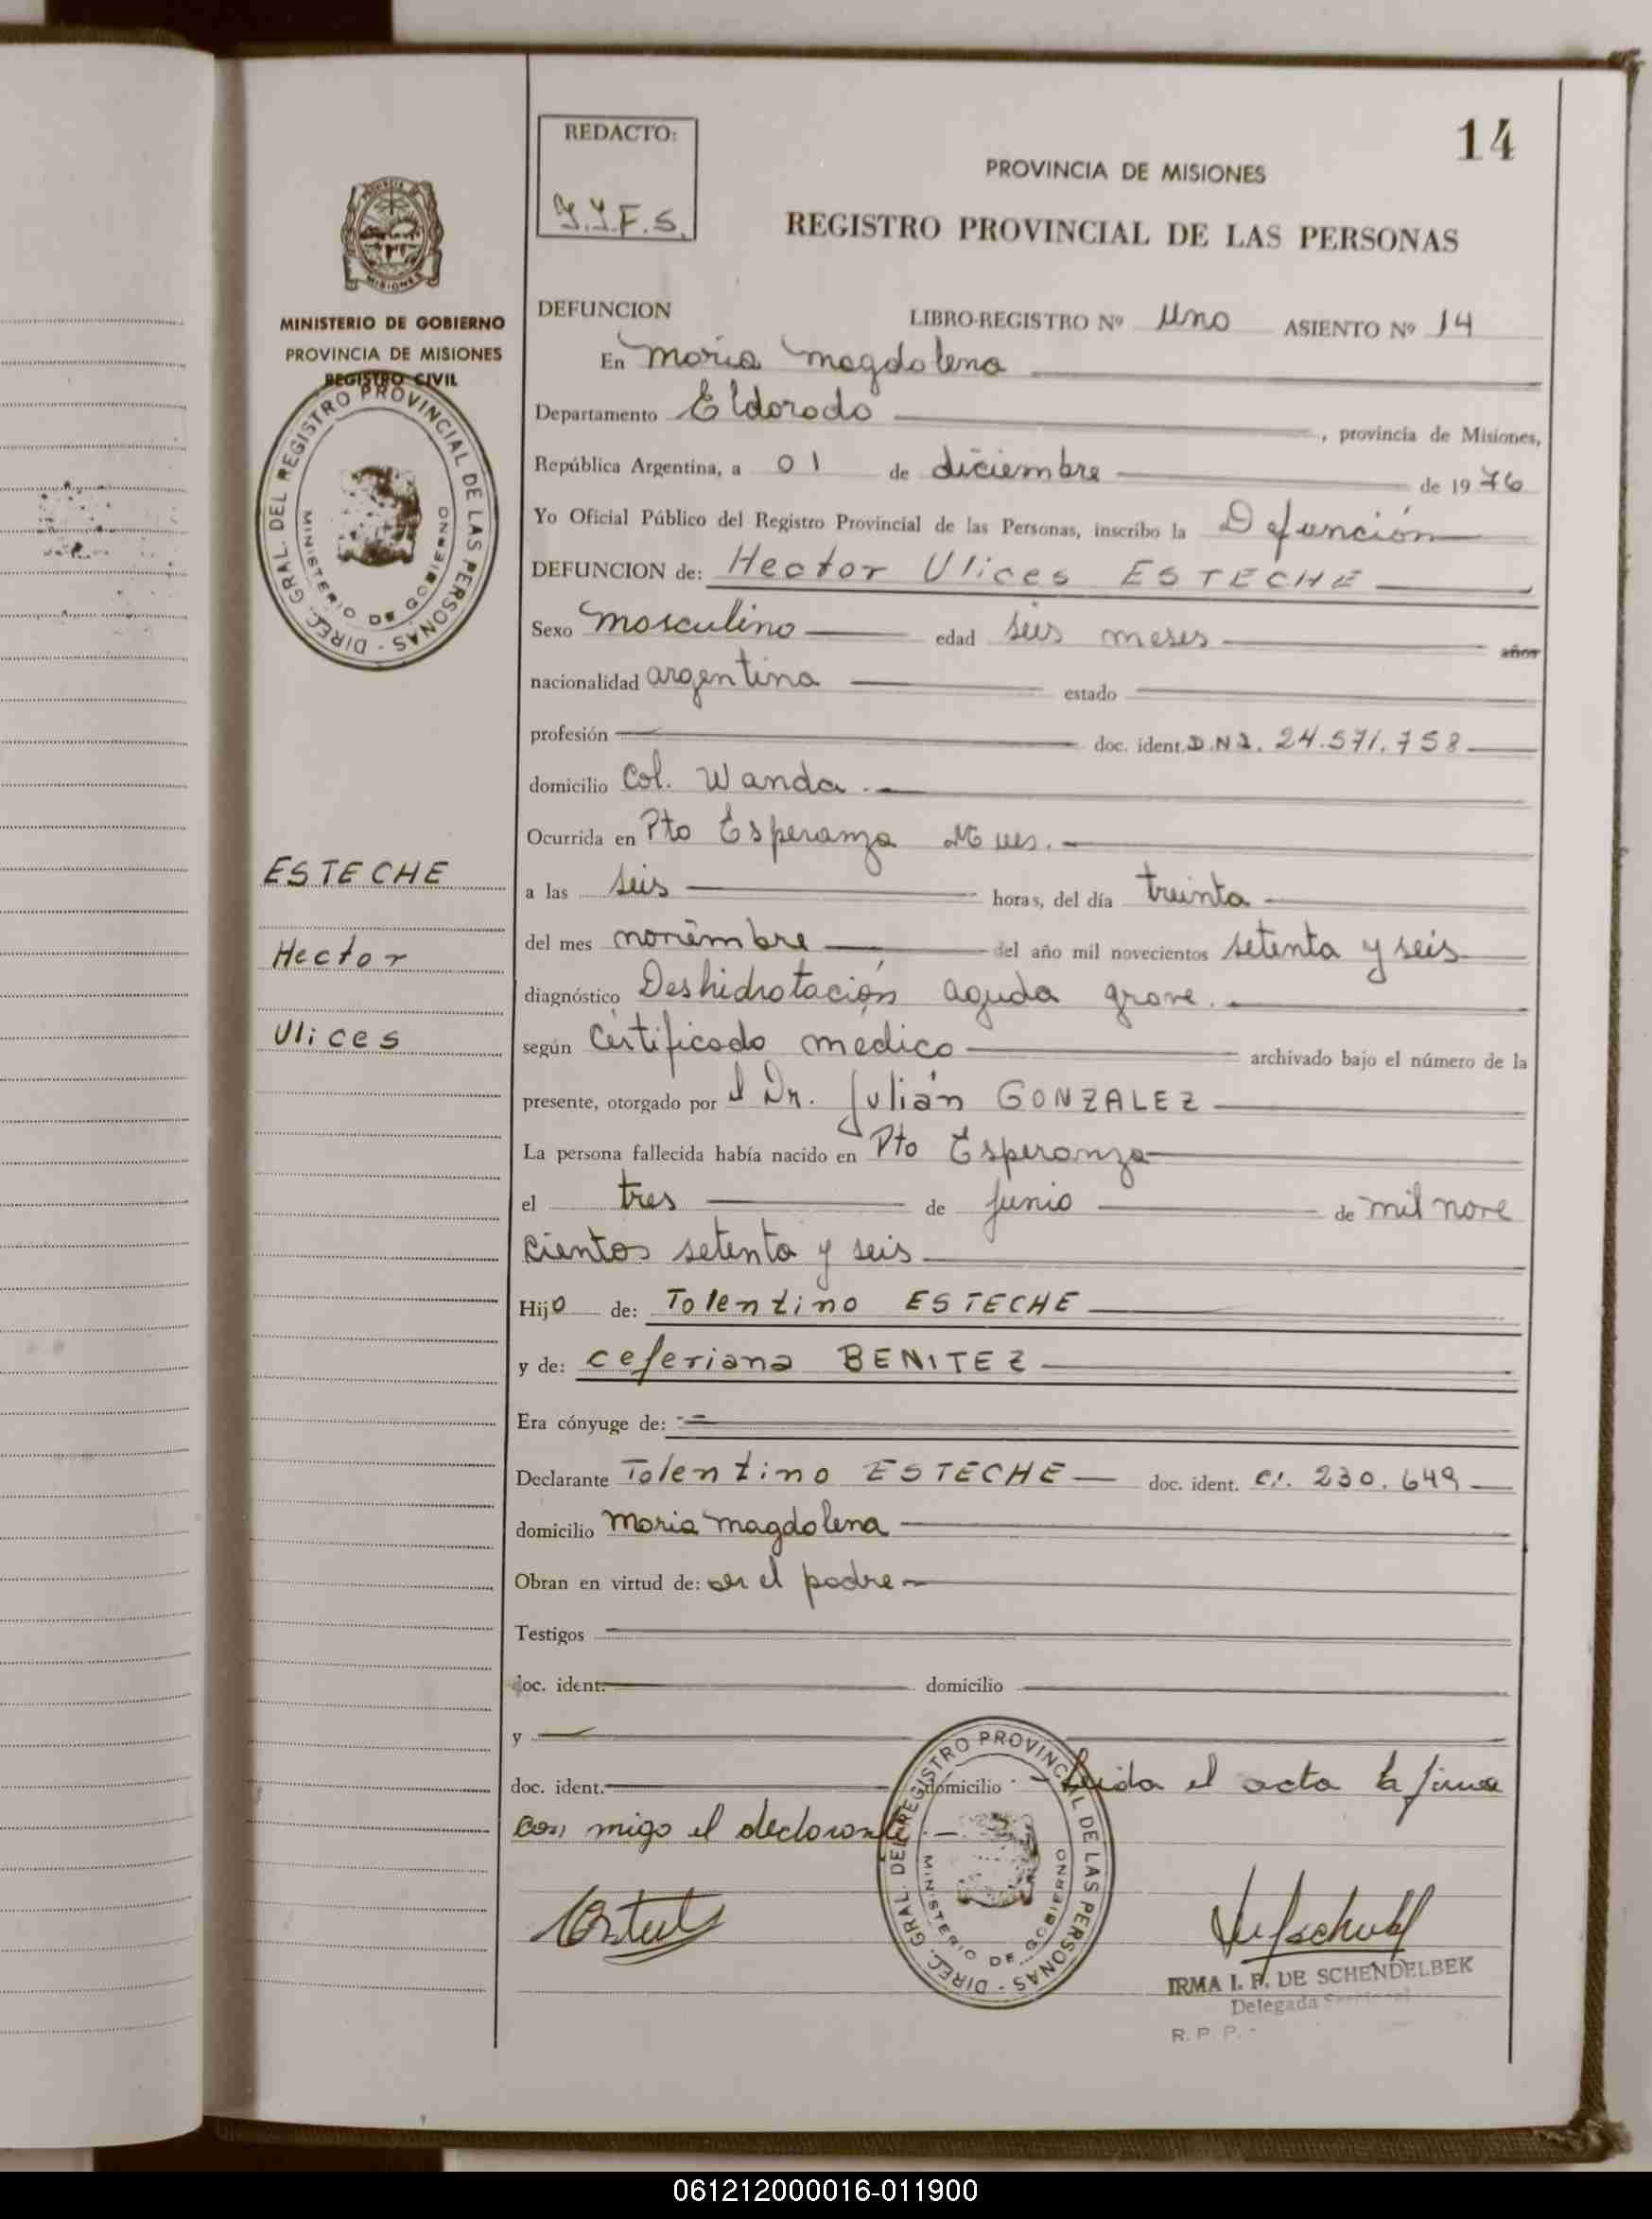 14
REDACTO:
PROVINCIA DE MISIONES
REGISTRO PROVINCIAL DE LAS PERSONAS
MINISTERIO DE GOBIERNO
PROVINCIA DE MISIONES
REGISTRO CIVIL
DIREC. GRAL. DEL REGISTRO PROVINCIAL DE LAS PERSONAS -
MINISTERIO DE GOBIERNO
ESTECHE
Hector
Ulices
DEFUNCION LIBRO-REGISTRO Nº uno ASIENTO Nº 14
En Maria Magdalena
Departamento Eldorado , provincia de Misiones,
República Argentina, a 01 de diciembre de 1976
Yo Oficial Público del Registro Provincial de las Personas, inscribo la Defunción
DEFUNCION de: Hector Ulices ESTECHE
Sexo masculino edad seis meses años
nacionalidad argentina estado
profesión doc. ident. D.N.I. 24.571.758
domicilio Col. Wanda .-
Ocurrida en Pto Esperanza
a las seis horas, del día treinta
del mes noviembre del año mil novecientos setenta y seis
diagnóstico Deshidratación aguda grave.-
según Certificado medico archivado bajo el número de la
presente, otorgado por el Dr. Julián GONZALEZ
La persona fallecida había nacido en Pto Esperanza
el tres de junio de mil nove
cientos setenta y seis
Hijo de: Tolentino ESTECHE
y de: Ceferiana BENITEZ
Era cónyuge de:
Declarante Tolentino ESTECHE doc. ident. C.I. 230.649
domicilio Maria Magdalena
Obran en virtud de: ser el padre
Testigos
doc. ident. domicilio
y
doc. ident. domicilio Leida el acta la firma
con migo el declarante.-
DIREC. GRAL. DEL REGISTRO PROVINCIAL DE LAS PERSONAS -
MINISTERIO DE GOBIERNO
IRMA I. F. DE SCHENDELBEK
Delegada
R. P. P. -
061212000016-011900